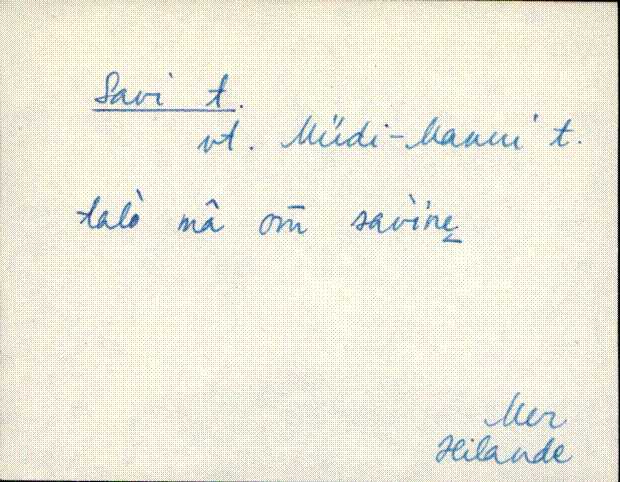 Savi t.
vt. Müdi-Hannu t.
talò mâ om̄ savìne̬
Mer
Hilande